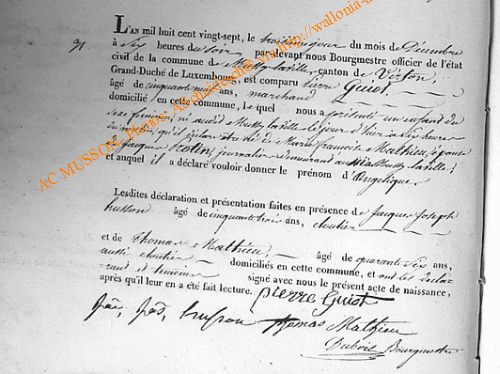 L'AN mil huit cent vingt-sept, le troisième jour du mois de Décembre
91
à six heures du soir par-devant nous Bourgmestre officier de l'état
civil de la commune de Mussy la ville, canton de Virton,
Grand-Duché de Luxembourg, est comparu Pierre Guiot,
âgé de cinquante ans, marchand
domicilié en cette commune, lequel nous a présenté un enfant de
sexe féminin, né audit Mussy la ville le jour d'hier à six heures
du matin, qu'il déclare être né de Marie françoise Mathieu, épouse
de Jacque journalier demeurant audit Mussy la ville;
et auquel il a déclaré vouloir donner le prénom d'Angelique
Lesdites déclaration et présentation faites en présence de Jacque Joseph
husson âgé de cinquante trois ans, cloutier
et de Thomas Mathieu, âgé de quarante six ans,
aussi cloutier domiciliés en cette commune, et ont les décla-
rant et témoins signé avec nous le présent acte de naissance,
après qu'il leur en a été fait lecture. pierre Guiot
husson thomas Mathieu
Dubois Bourgmestre
AC MUSSON, Photos: via http://wallonia-